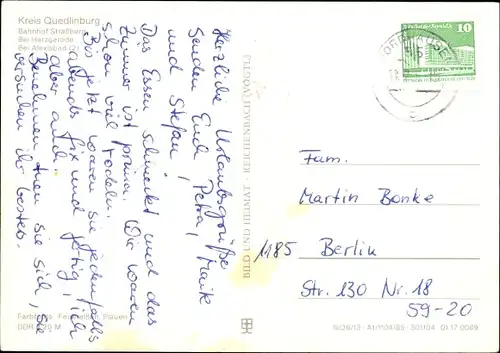 Kreis Quedlinburg
Bahnhof Straßberg
Bei Harzgerode
Bei Alexisbad (2)
Herzliche Urlaubsgrüße
senden Euch Petra, Maik
und Stefan!
Das Essen schmeckt und das
Zimmer ist prima. Wir waren
schon viel rodeln.
Bis jetzt waren sie jedenfalls
abends fix und fertig, ich
aber auch!
Benehmen tuen sie sich, sie
versuchen ihr bestes.
Farbfotos
Plauen
DDR 0,20 M
BILD UND HEIMAT
REICHENBACH (VOGTL)
10
Fam.
Martin Bonke
1185 Berlin
Str. 130 Nr. 18
59-20
A1/1104/85
301/04
01 17 0049